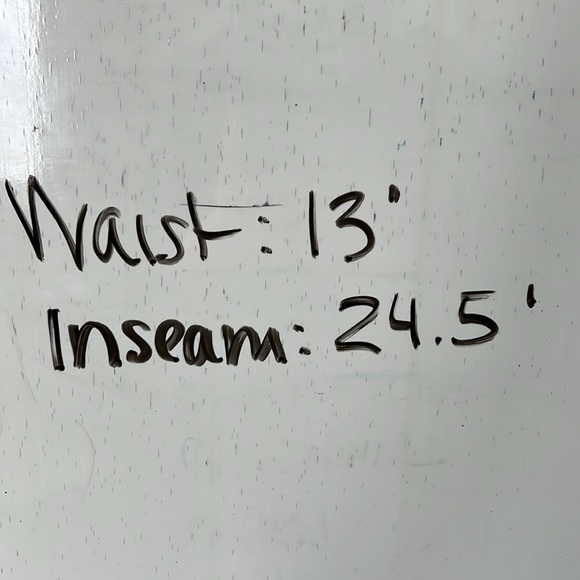 Waist: 13"
Inseam: 24.5'